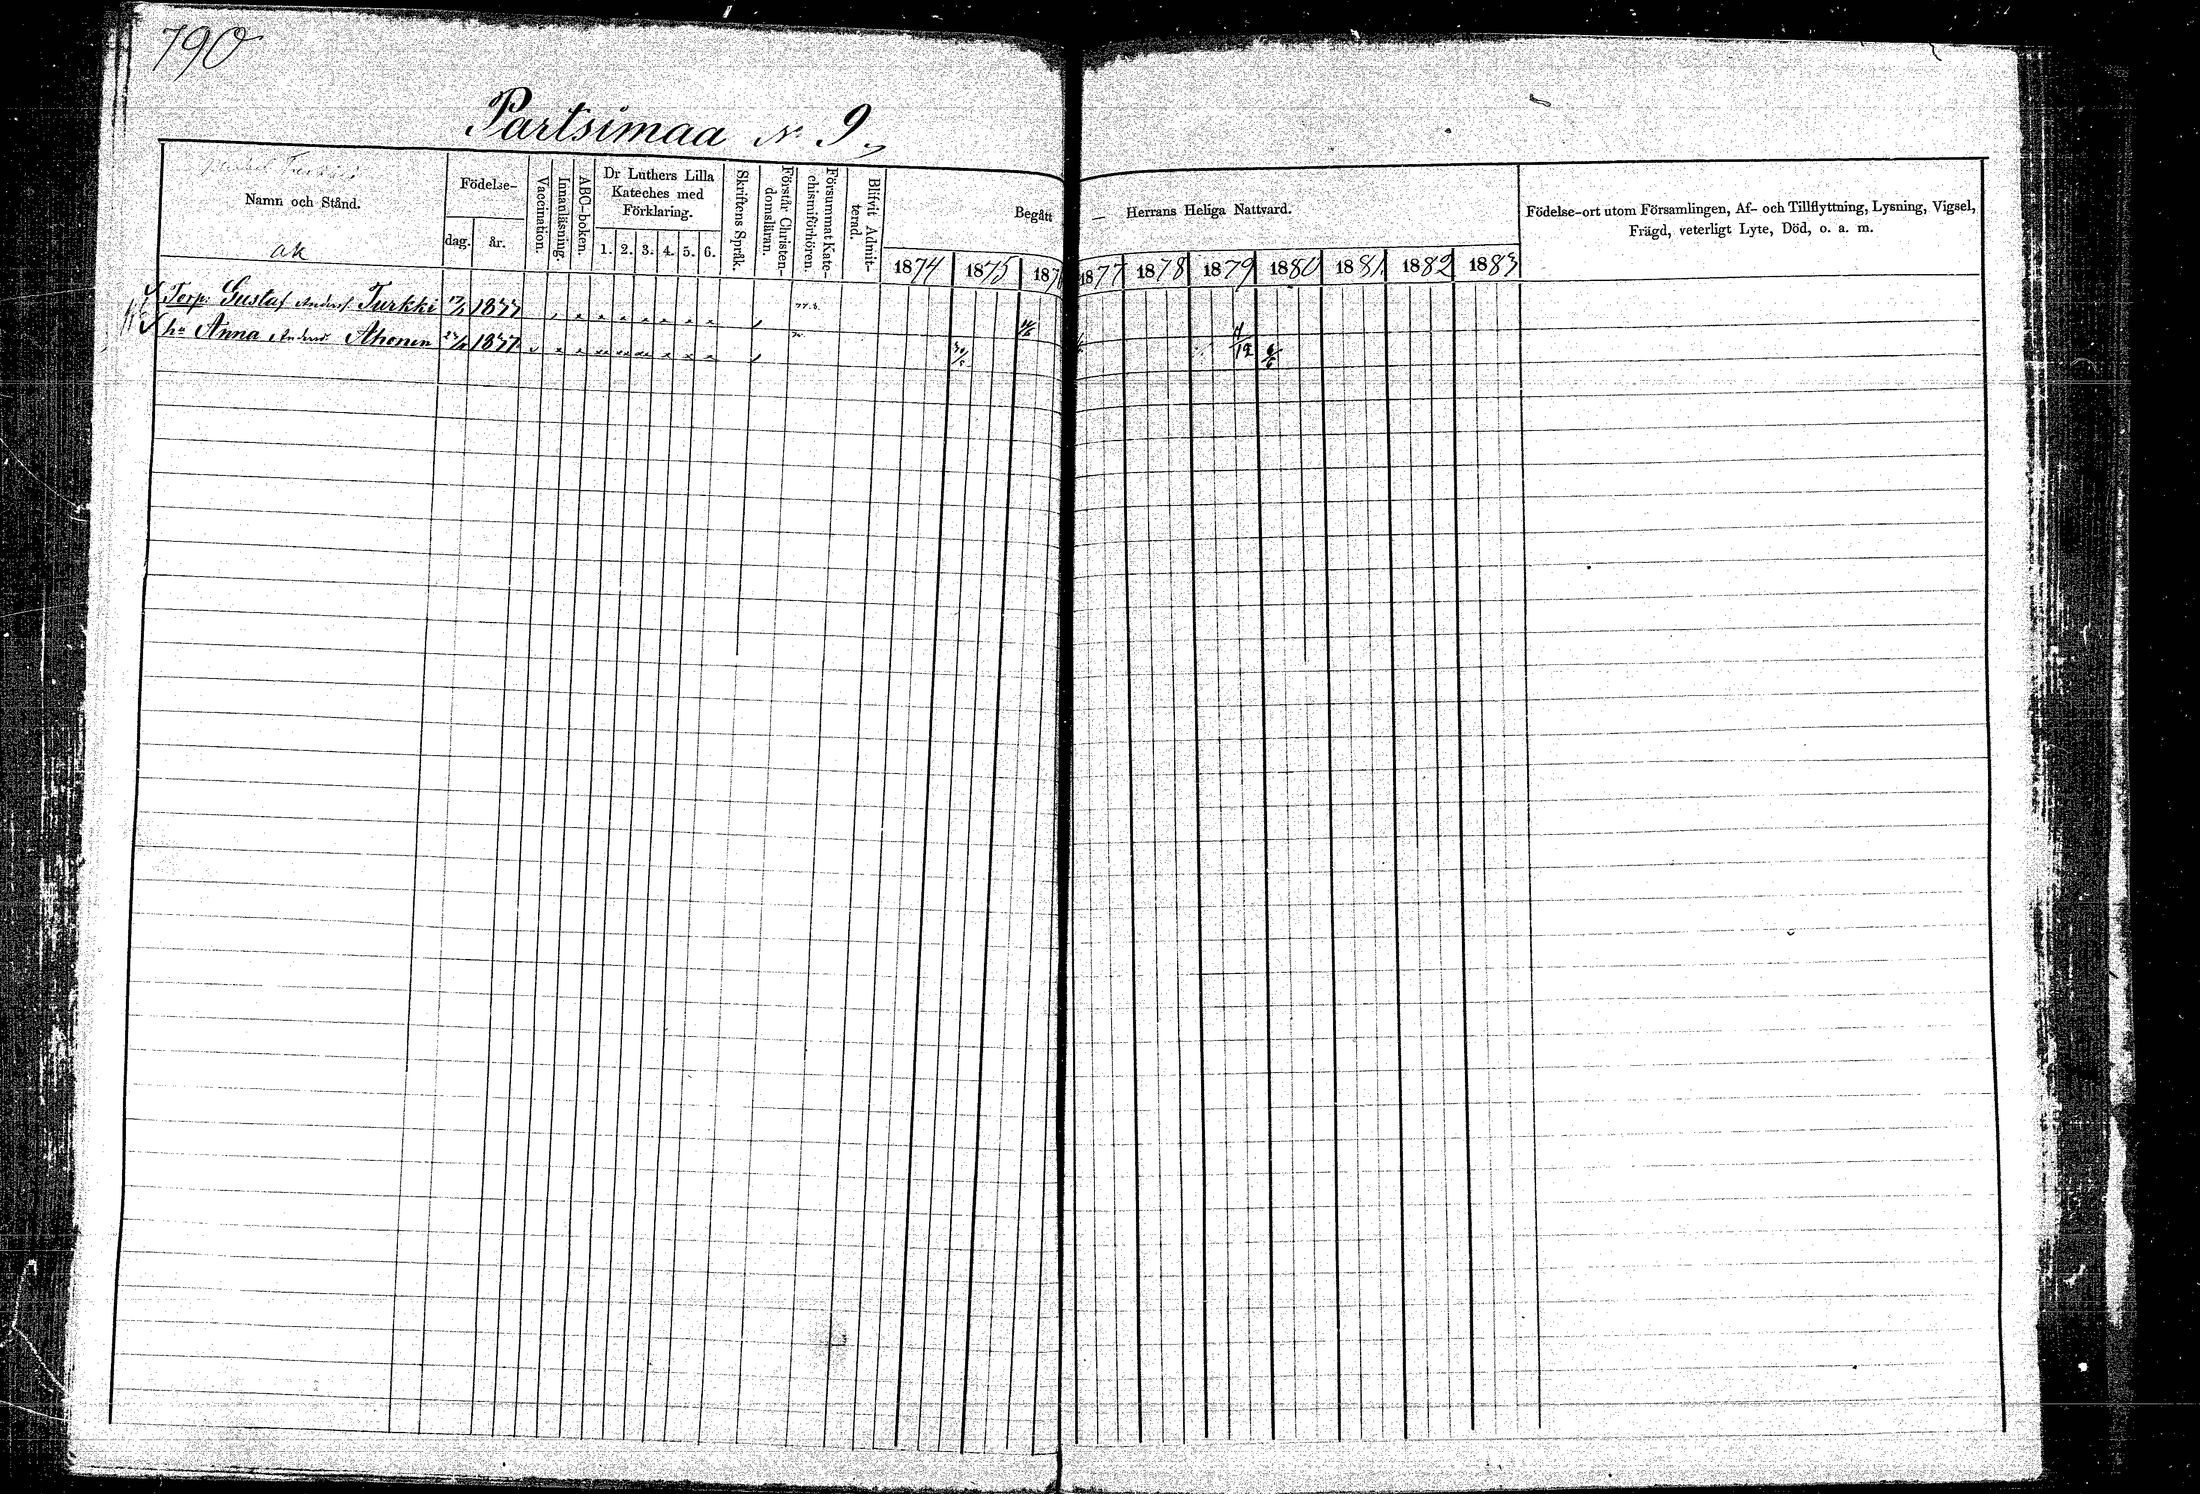 790
Partsimaa No 9
Namn och Stånd.
Födelse-
dag.
år.
Vaccination.
Innanläsning.
ABC-boken.
Dr Luthers Lilla
Kateches med
Förklaring.
1. 2. 3. 4. 5. 6.
Skriftens Språk.
Förstår Christen-
domsläran.
Försummat Kate-
chismiförhören.
Blifvit Admit-
terad.
Begått
Herrans Heliga Nattvard.
1874 1875 187
1877 1878 1879 1880 1881 1882 1883
Födelse-ort utom Församlingen, Af- och Tillflyttning, Lysning, Vigsel,
Frägd, veterligt Lyte, Död, o. a. m.
ak
Torp. Gustaf Anders s. Turkki
hu Anna Andersd. Ahonen